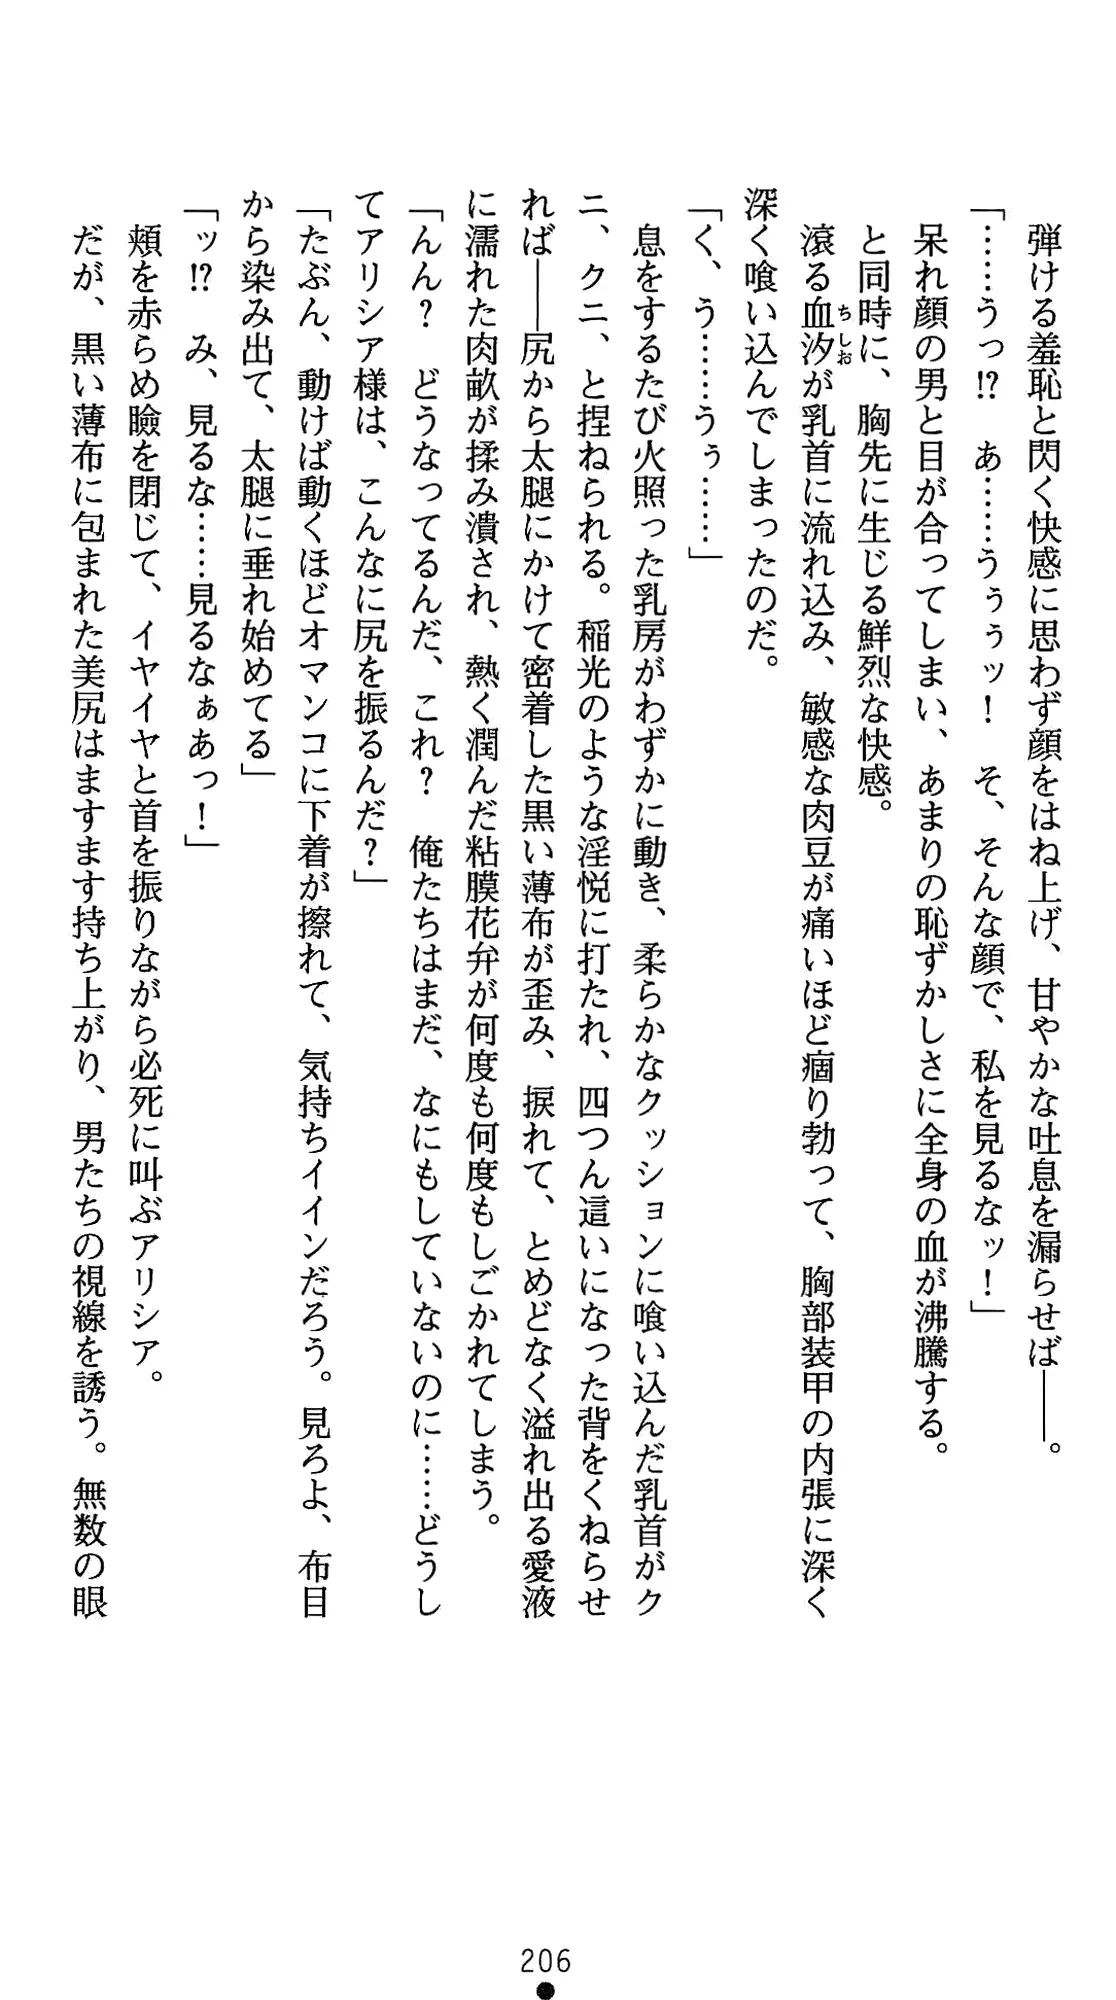 弾ける羞恥と閃く快感に思わず顔をはね上げ、甘やかな吐息を漏らせば――。
「……うっ!?　あ……うぅぅッ！　そ、そんな顔で、私を見るなッ！」
呆れ顔の男と目が合ってしまい、あまりの恥ずかしさに全身の血が沸騰する。
と同時に、胸先に生じる鮮烈な快感。
滾る血汐が乳首に流れ込み、敏感な肉豆が痛いほど痼り勃って、胸部装甲の内張に深く
ちしお
深く喰い込んでしまったのだ。
「く、う……うぅ……」
息をするたび火照った乳房がわずかに動き、柔らかなクッションに喰い込んだ乳首がク
ニ、クニ、と捏ねられる。稲光のような淫悦に打たれ、四つん這いになった背をくねらせ
れば――尻から太腿にかけて密着した黒い薄布が歪み、捩れて、とめどなく溢れ出る愛液
に濡れた肉畝が揉み潰され、熱く潤んだ粘膜花弁が何度も何度もしごかれてしまう。
「んん？　どうなってるんだ、これ？　俺たちはまだ、なにもしていないのに……どうし
てアリシア様は、こんなに尻を振るんだ？」
「たぶん、動けば動くほどオマンコに下着が擦れて、気持ちイインだろう。見ろよ、布目
から染み出て、太腿に垂れ始めてる」
「ッ!?　み、見るな……見るなぁあっ！」
頬を赤らめ瞼を閉じて、イヤイヤと首を振りながら必死に叫ぶアリシア。
だが、黒い薄布に包まれた美尻はますます持ち上がり、男たちの視線を誘う。無数の眼
206